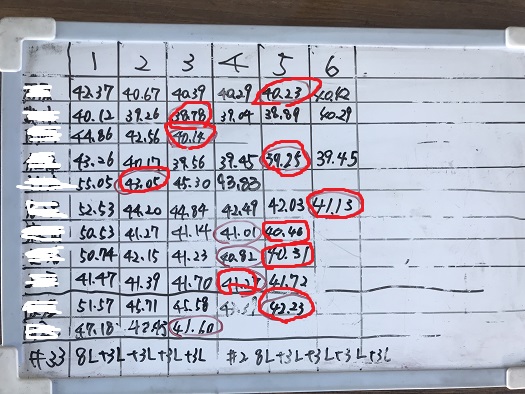 1 2 3 4 5 6
42.37 40.67 40.39 40.29 40.23 40.42
40.12 39.26 38.78 39.04 38.89 40.29
44.86 42.56 40.14
43.26 40.17 39.56 39.45 39.25 39.45
55.05 43.05 45.30 43.83
52.53 44.20 44.84 42.49 42.03 41.13
50.53 41.27 41.14 41.01 40.46
50.74 42.15 41.23 40.82 40.31
41.47 41.39 41.70 41.27 41.72
51.57 45.71 45.58 42.23
47.18 42.45 41.60
#33 8L+3L+3L+3L+3L #2 8L+3L+3L+3L+3L